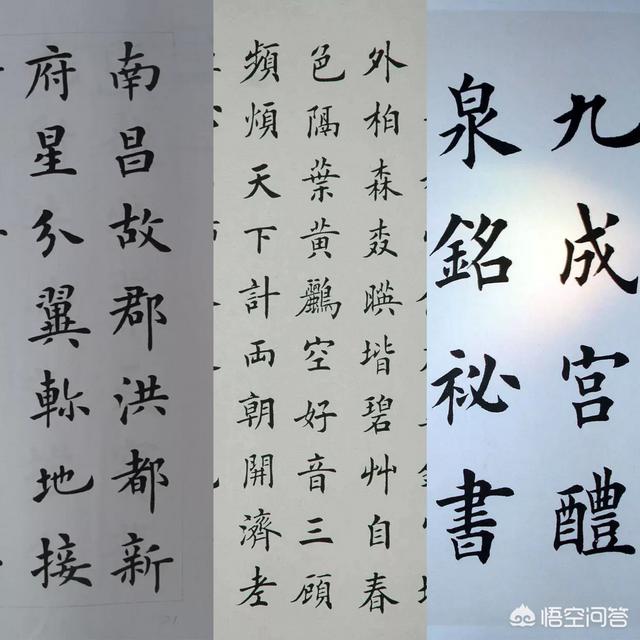 南昌故郡洪都新
府星分翼軫地接
外柏森森暎堦碧艸自春
色隔葉黄鸝空好音三顧
頻煩天下計両朝開濟老
九成宫醴
泉銘祕書
悟空问答